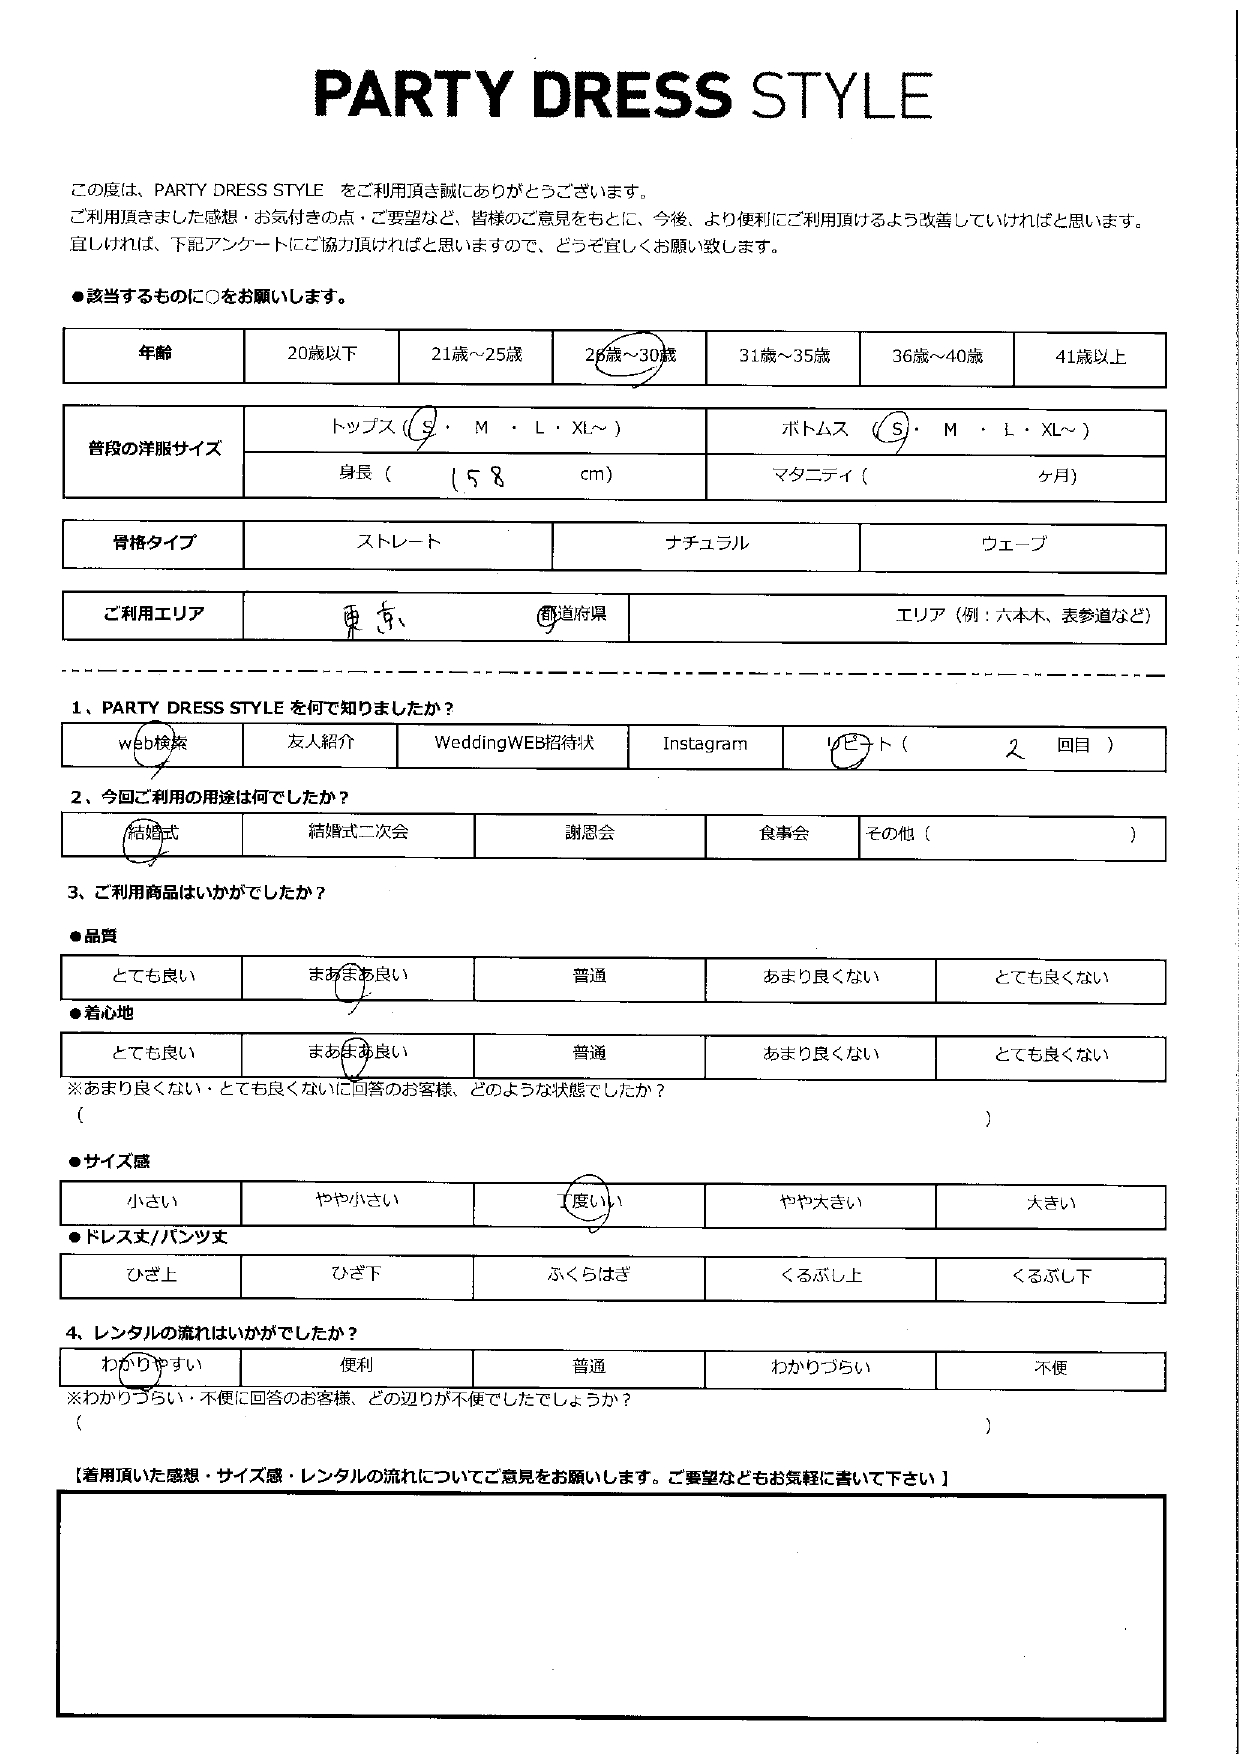 PARTY DRESS STYLE
この度は、PARTY DRESS STYLE をご利用頂き誠にありがとうございます。
ご利用頂きました感想・お気付きの点・ご要望など、皆様のご意見をもとに、今後、より便利にご利用頂けるよう改善していければと思います。
宜しければ、下記アンケートにご協力頂ければと思いますので、どうぞ宜しくお願い致します。
●該当するものに○をお願いします。
年齢 20歳以下 21歳～25歳 26歳～30歳 31歳～35歳 36歳～40歳 41歳以上
普段の洋服サイズ トップス ( S ・ M ・ L ・ XL～ ) ボトムス ( S ・ M ・ L ・ XL～ )
身長 ( 158 cm) マタニティ ( ヶ月)
骨格タイプ ストレート ナチュラル ウェーブ
ご利用エリア 東京 都道府県 エリア（例：六本木、表参道など）
1、PARTY DRESS STYLE を何で知りましたか？
web検索 友人紹介 WeddingWEB招待状 Instagram リピート ( 2 回目 )
2、今回ご利用の用途は何でしたか？
結婚式 結婚式二次会 謝恩会 食事会 その他 ( )
3、ご利用商品はいかがでしたか？
●品質
とても良い まあまあ良い 普通 あまり良くない とても良くない
●着心地
とても良い まあまあ良い 普通 あまり良くない とても良くない
※あまり良くない・とても良くないに回答のお客様、どのような状態でしたか？
( )
●サイズ感
小さい やや小さい 丁度いい やや大きい 大きい
●ドレス丈/パンツ丈
ひざ上 ひざ下 ふくらはぎ くるぶし上 くるぶし下
4、レンタルの流れはいかがでしたか？
わかりやすい 便利 普通 わかりづらい 不便
※わかりづらい・不便に回答のお客様、どの辺りが不便でしたでしょうか？
( )
【着用頂いた感想・サイズ感・レンタルの流れについてご意見をお願いします。ご要望などもお気軽に書いて下さい 】